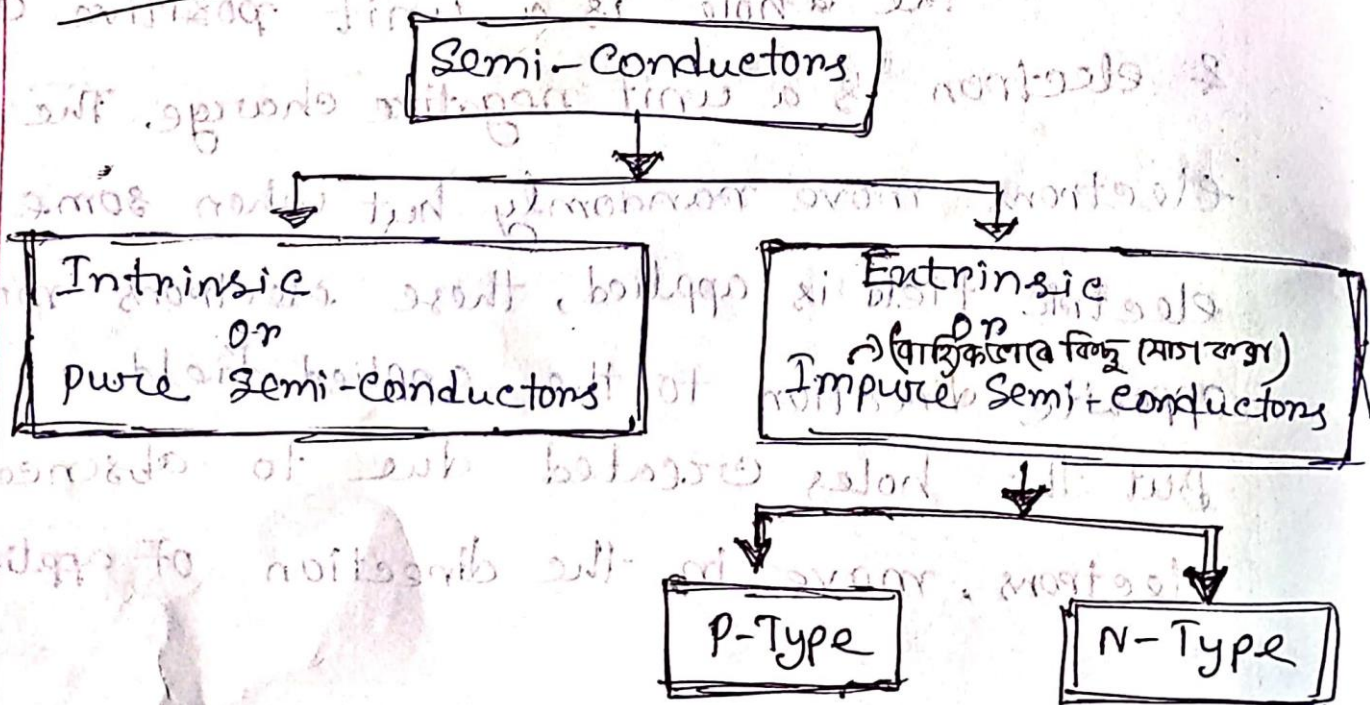 Semi-Conductors
Intrinsic
or
pure Semi-conductors
Extrinsic
or
(বাহ্যিকভাবে কিছু যোগ করা)
Impure Semi-conductors
P-Type
N-Type